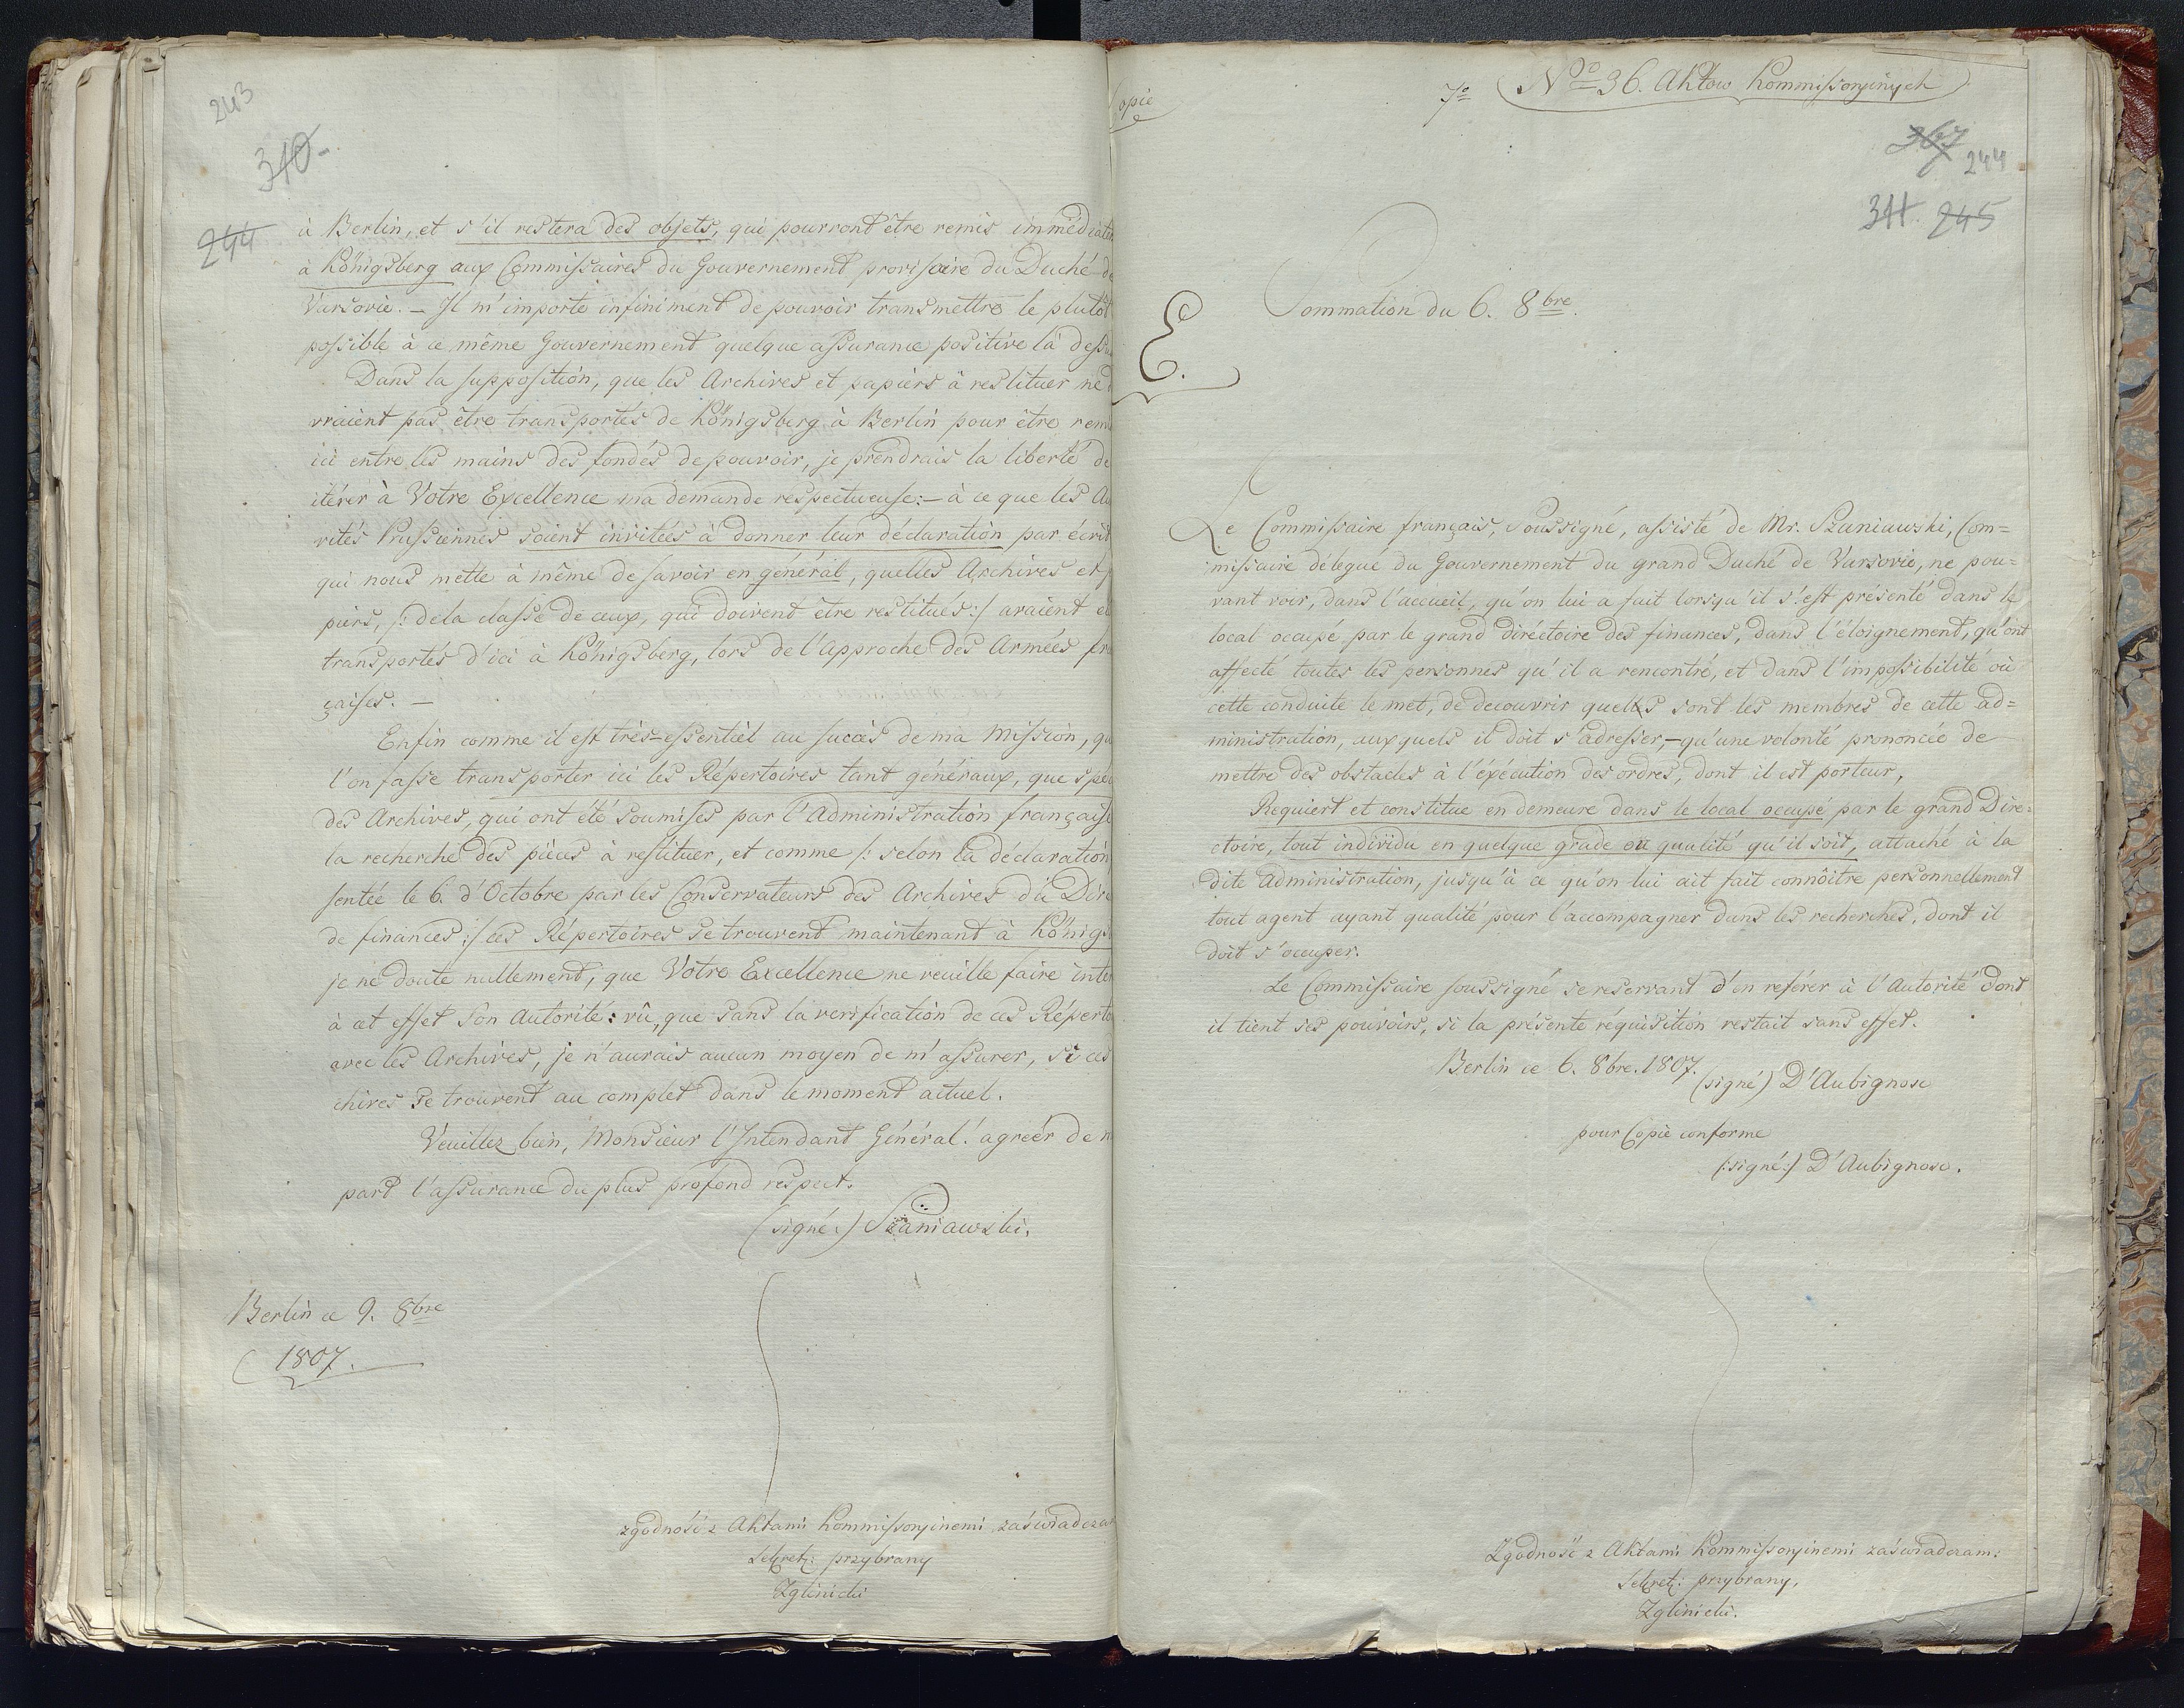 243
310-
244
à Berlin, et s'il restera des objets, qui pourront être remis immédiate
à Königsberg aux Commissaires du Gouvernement provisoire du Duché de
Varsovie. – Il m'importe infiniment de pouvoir transmettre le plutôt
possible à ce même Gouvernement quelque assurance positive là dessu
Dans la supposition, que les Archives et papiers à restituer ne d
vraient pas être transportés de Königsberg à Berlin pour être remi
ici entre les mains des fondés de pouvoir, je prendrais la liberté de
itérer à Votre Excellence ma demande respectueuse: – à ce que les Au
rités Prussiennes soient invitées à donner leur déclaration par écrit
qui nous mette à même de savoir en général, quelles Archives et p
piers, /: de la classe de ceux, qui doivent être restitués :/ avaient é
transportés d'ici à Königsberg, lors de l'Approche des Armées fra
çaises. –
Enfin comme il est très-essentiel au succès de ma Mission, qu
l'on fasse transporter ici les Répertoires tant généraux, que spéc
des Archives, qui ont été soumises par l'Administration française
la recherche des pièces à restituer, et comme /: selon la déclaration
sentée le 6. d'Octobre par les Conservateurs des Archives du Dire
de finances :/ ces Répertoires se trouvent maintenant à Königs
je ne doute nullement, que Votre Excellence ne veuille faire inter
à cet effet Son Autorité: vû, que sans la verification de ces Réperto
avec les Archives, je n'aurais aucun moyen de m'assurer, si ces
chives se trouvent au complet dans le moment actuel.
Veuillez bien, Monsieur l'Intendant Général! agréer de m
part l'assurance du plus profond respect.
(signé:) Szaniawski.
Berlin ce 9. 8bre
1807.
zgodność z Aktami Kommissoryinemi zaświadczam
Sekret: przybrany
Zglinicki
opie
7o No 36. Aktow Kommissoryinych
367
244
311. 245
E.
Sommation du 6. 8bre.
Le Commissaire français, Soussigné, assisté de Mr. Szaniawski, Com=
missaire délegué du Gouvernement du grand Duché de Varsovie, ne pou=
vant voir, dans l'accueil, qu'on lui a fait lorsqu'il s'est présenté dans le
local occupé par le grand diréctoire des finances, dans l'éloignement, qu'ont
affecté toutes les personnes qu'il a rencontré, et dans l'impossibilité où
cette conduite le met, de decouvrir quells sont les membres de cette ad=
ministration, auxquels il doit s'adresser, – qu'une volonté prononcée de
mettre des obstacles à l'éxécution des ordres, dont il est porteur,
Requiert et constitue en demeure dans le local occupé par le grand Dire=
ctoire, tout individu en quelque grade ou qualité qu'il soit, attaché à la
dite Administration, jusqu'à ce qu'on lui ait fait connôitre personnellement
tout agent ayant qualité pour l'accompagner dans les recherches, dont il
doit s'occuper.
Le Commissaire soussigné se reservant d'en referer à l'Autorité dont
il tient ses pouvoirs, si la présente réquisition restait sans effet.
Berlin ce 6. 8bre. 1807.
(signé) D'Aubignosc
pour Copie conforme
(:signé:) D'Aubignosc.
Zgodność z Aktami Kommissoryinemi zaświadczam:
Sekret: przybrany,
Zglinicki.